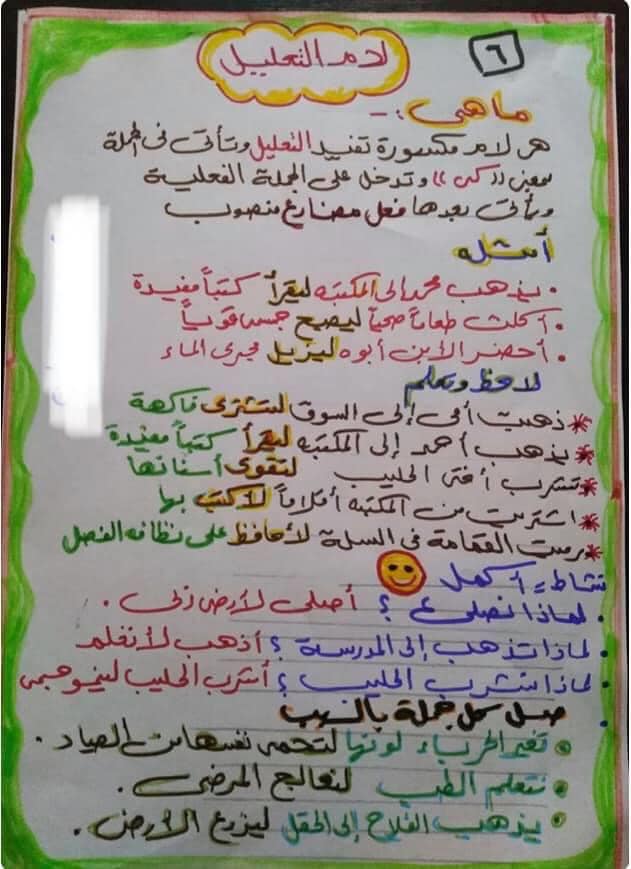 ٦
لام التعليل
ما هي :-
هي لام مكسورة تفيد التعليل وتأتى فى الجملة
بمعنى "كى" وتدخل على الجملة الفعلية
ويأتى بعدها فعل مضارع منصوب
أمثله
• يذهب محمد إلى المكتبه ليقرأ كتباً مفيدة
• أكلت طعاماً صحياً ليصبح جسمى قوياً
• أحضر الأبن أبوه ليزيل مجرى الماء
لاحظ وتعلم
* ذهبت أمى إلى السوق لتشترى فاكهة
* يذهب أحمد إلى المكتبه ليقرأ كتباً مفيدة
* تشرب أختى الحليب لتقوى أسنانها
* اشتريت من المكتبه أقلاماً لأكتب بها
* رميت القمامة فى السلة لأحافظ على نظافه الفصل
نشاط ، أكمل
• لماذا تصلى ؟ أصلى لأرضى ربى .
• لماذا تذهب إلى المدرسة ؟ أذهب لأتعلم
• لماذا تشرب الحليب ؟ أشرب الحليب لينمو جسمى
• صل كل جملة بالسبب
• تغير الحرباء لونها لتحمى نفسها من الصياد .
• نتعلم الطب لنعالج المرضى .
• يذهب الفلاح إلى الحقل ليزرع الأرض .